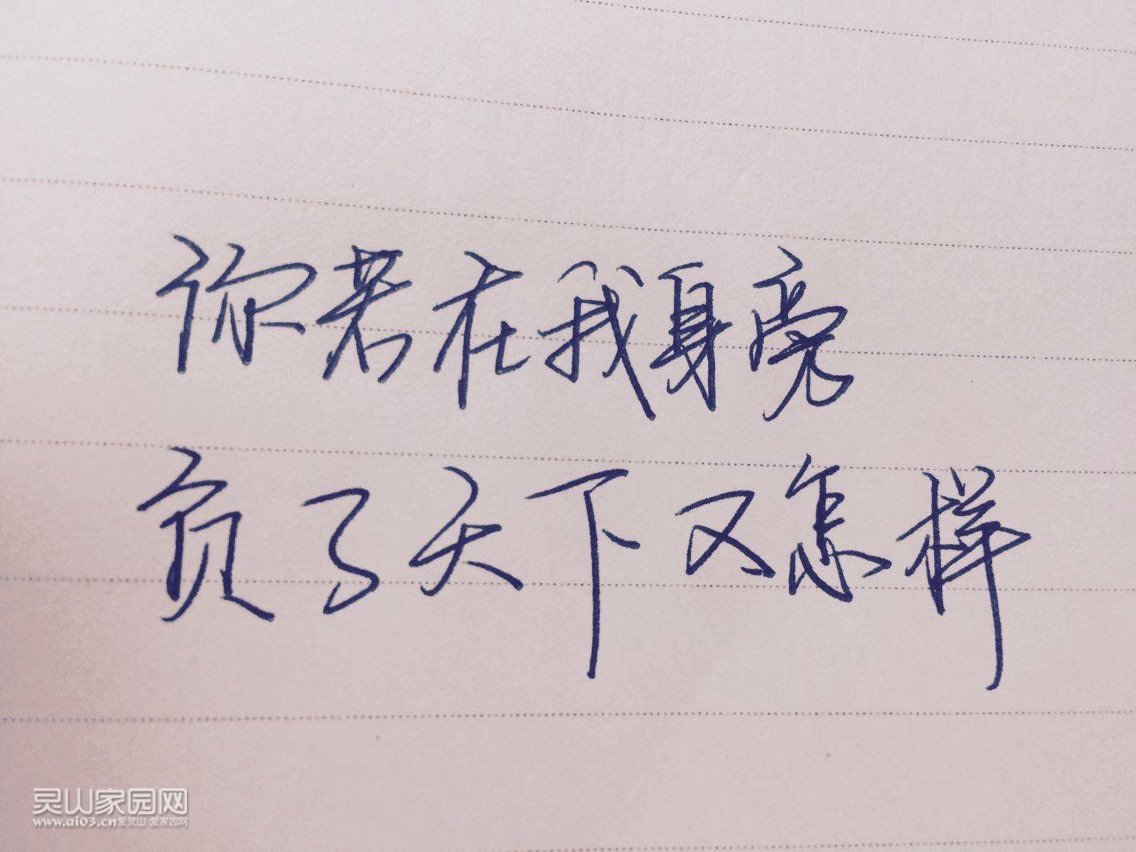 你若在我身旁
负了天下又怎样
灵山家园网
www.ai03.cn爱灵山 爱家园网